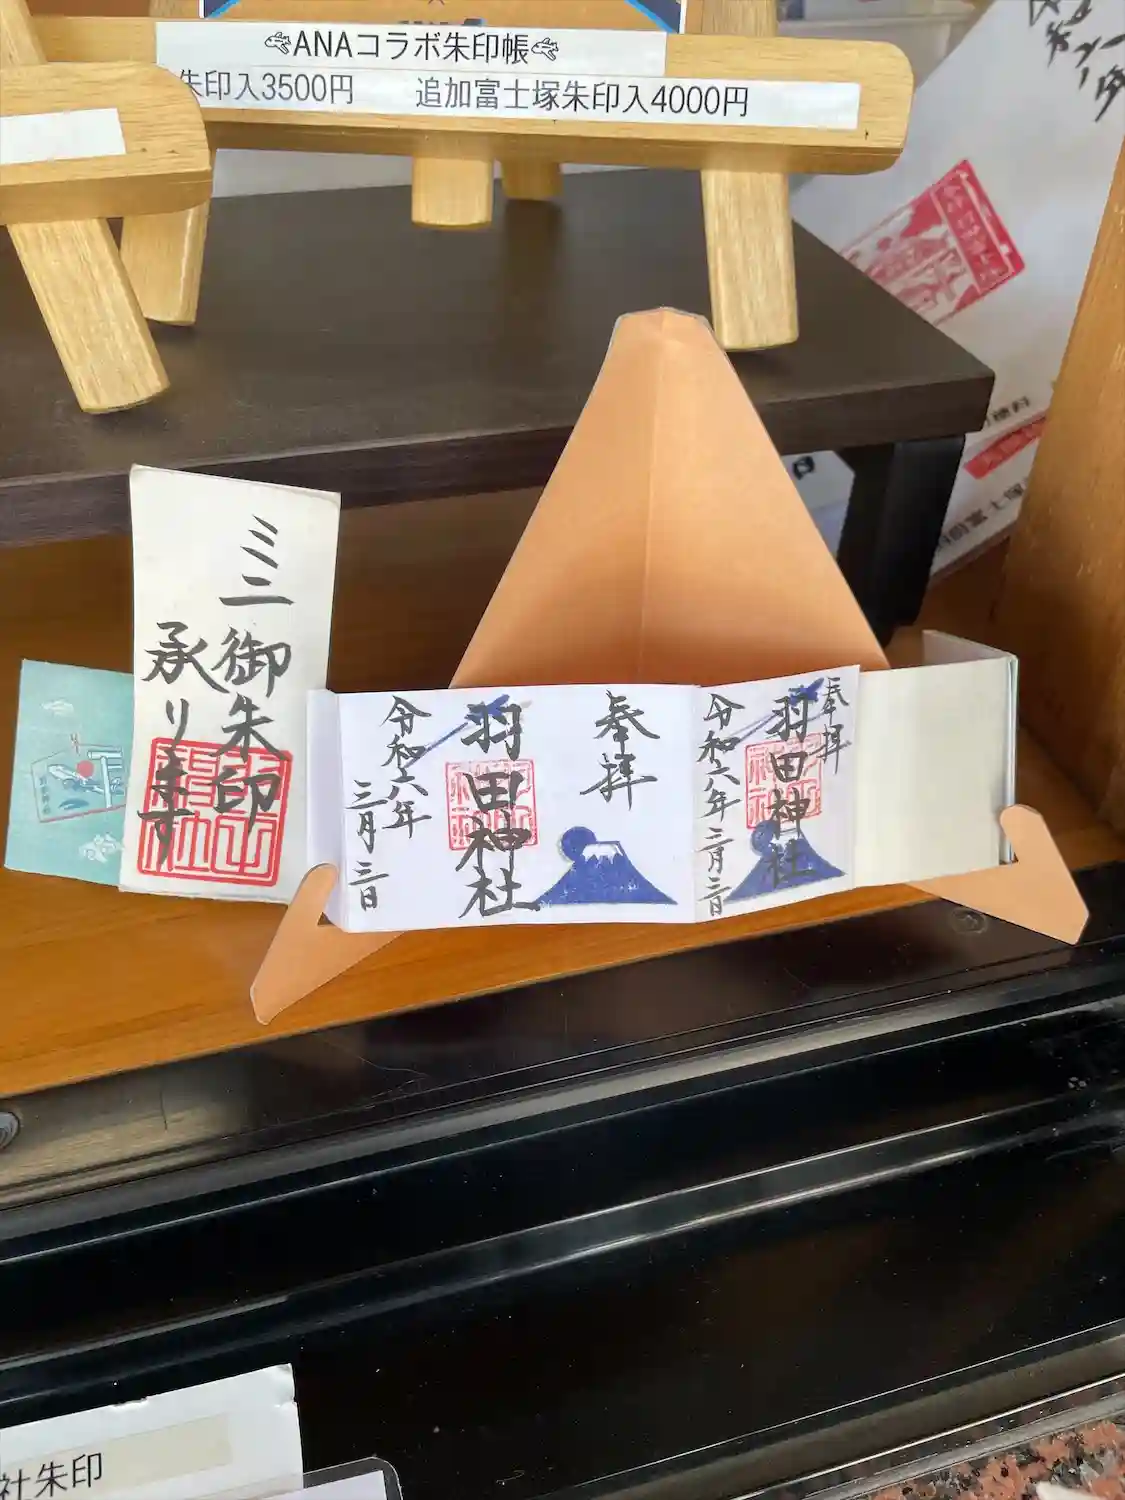 ANAコラボ朱印帳
朱印入3500円 追加富士塚朱印入4000円
ミニ御朱印
承ります
奉拝
羽田神社
令和六年
三月三日
奉拝
羽田神社
令和六年三月三日
社朱印